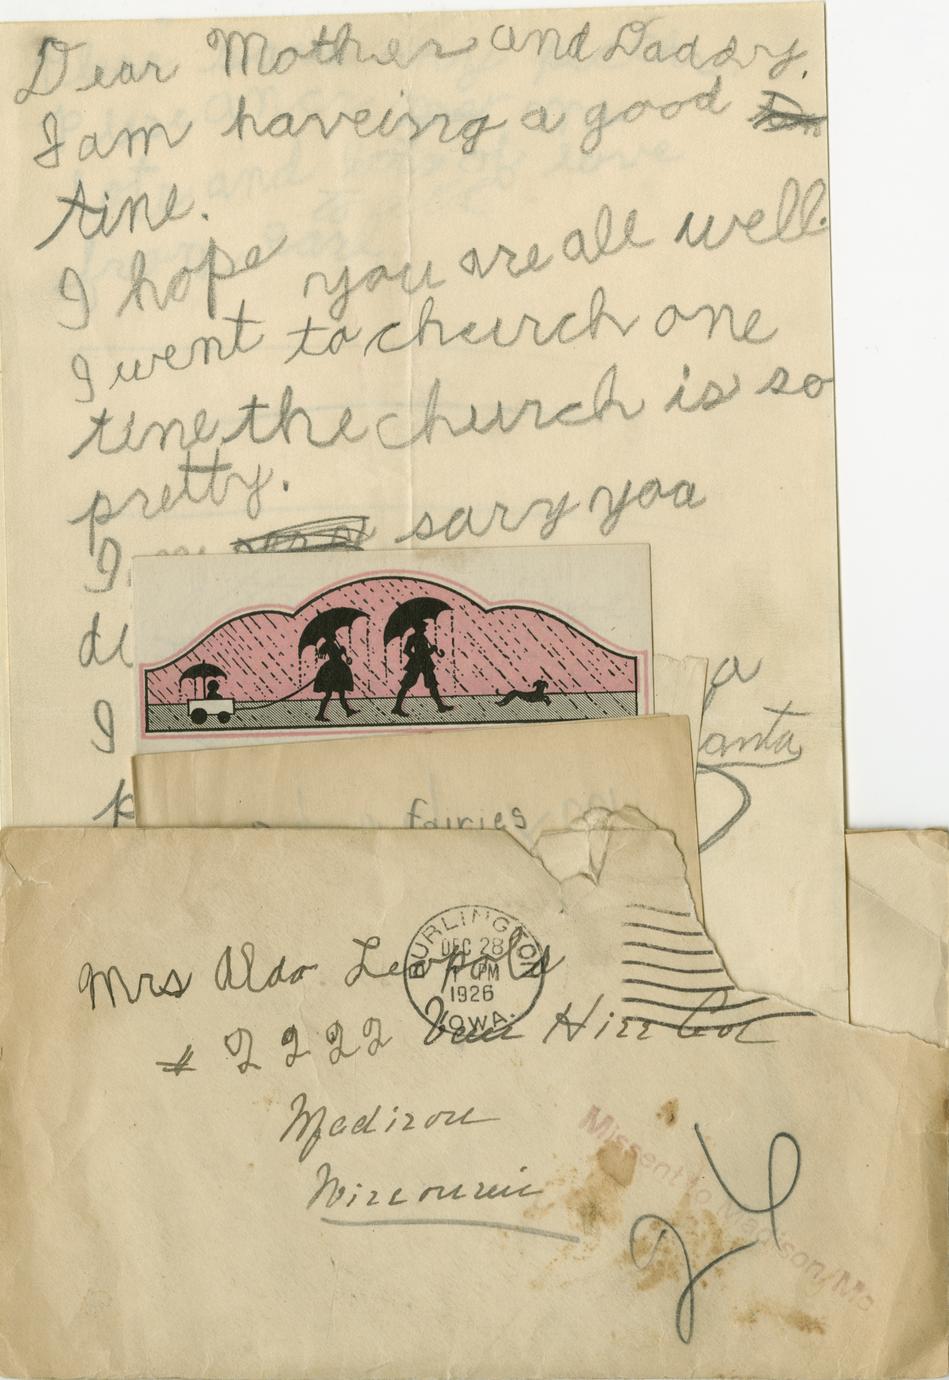 Dear Mother and Daddy.
I am haveing a good
tine.
I hope you are all well.
I went to church one
tine the church is so
pretty.
I sary you
I
a
fairies
BURLINGTON
DEC 28
PM
1926
IOWA.
Mrs Aldo Leopold
# 2222 Van Hise
Madison
Wisconsin
Missent to Madison, Mo